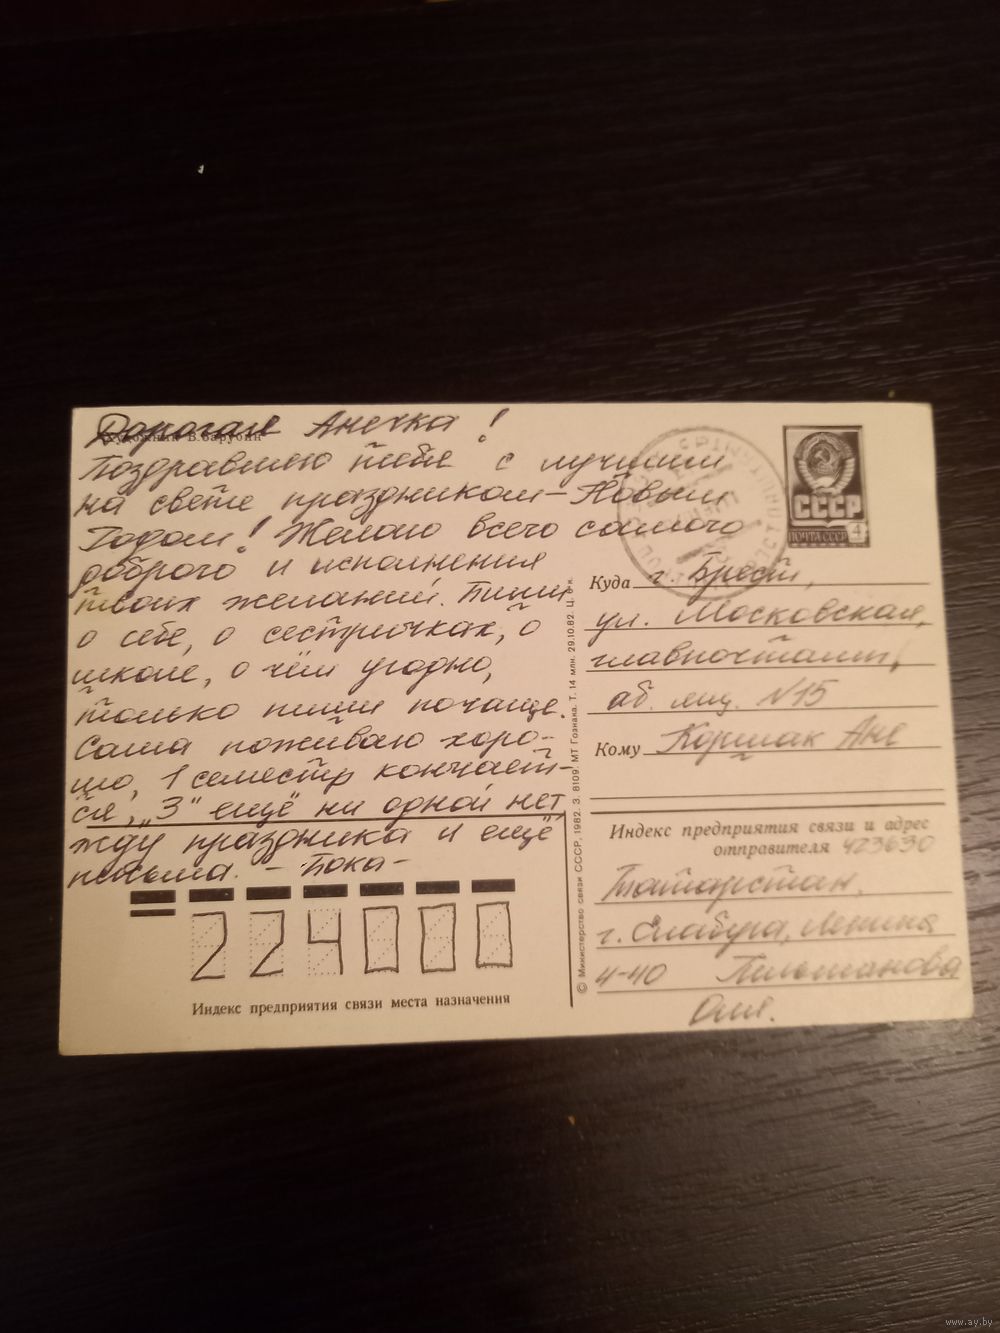 Художник В. Зарубин
Дорогая Анечка!
Поздравляю тебя с лучшим
на свете праздником – Новым
Годом! Желаю всего самого
доброго и исполнения
твоих желаний. Пиши
о себе, о сестричках, о
школе, о чём угодно,
только пиши почаще.
Сама поживаю хоро-
шо, 1 семестр кончает-
ся, „3" ещё ни одной нет,
жду праздника и ещё
письма. – Пока –
224000
Индекс предприятия связи места назначения
© Министерство связи СССР, 1982. З. 8109. МТ Гознака. Т. 14 млн. 29.10.82. Ц. 5 к.
СССР
ПОЧТА СССР 4
Куда г. Брест,
ул. Московская,
главпочтамт,
аб. ящ. N15
Кому Коршак Ане
Индекс предприятия связи и адрес
отправителя 423630
Татарстан,
г. Елабуга, Ленина
4-40
Оля.
www.ay.by